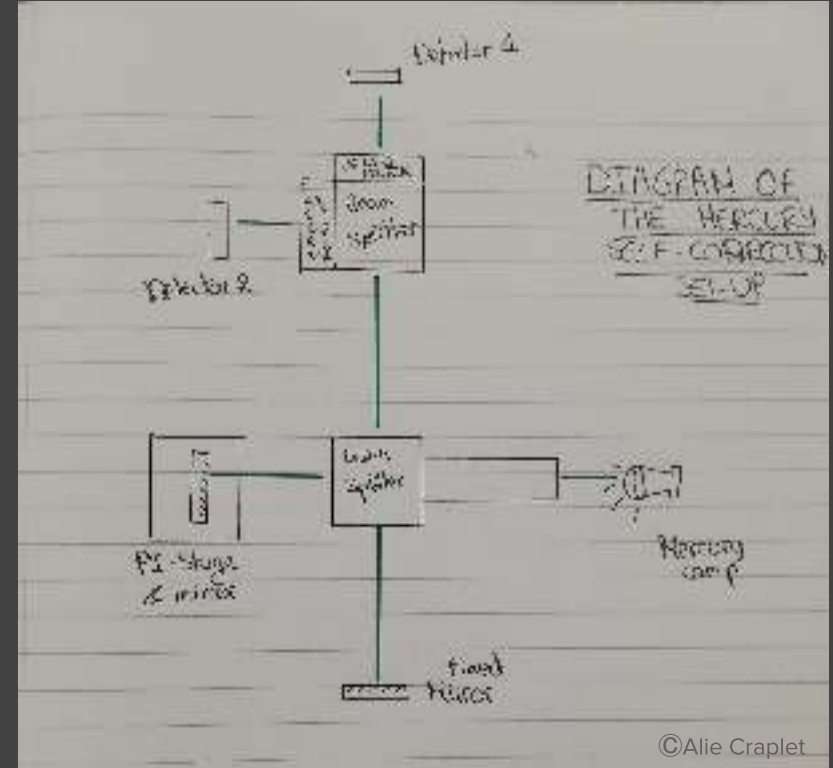 Detector 1
Beam
Splitter
DIAGRAM OF
THE MERCURY
SELF-CORRECTION
SET-UP
Detector 2
Beam
Splitter
PI-Stage
& mirror
Mercury
Lamp
Fixed
Mirror
©Alie Craplet